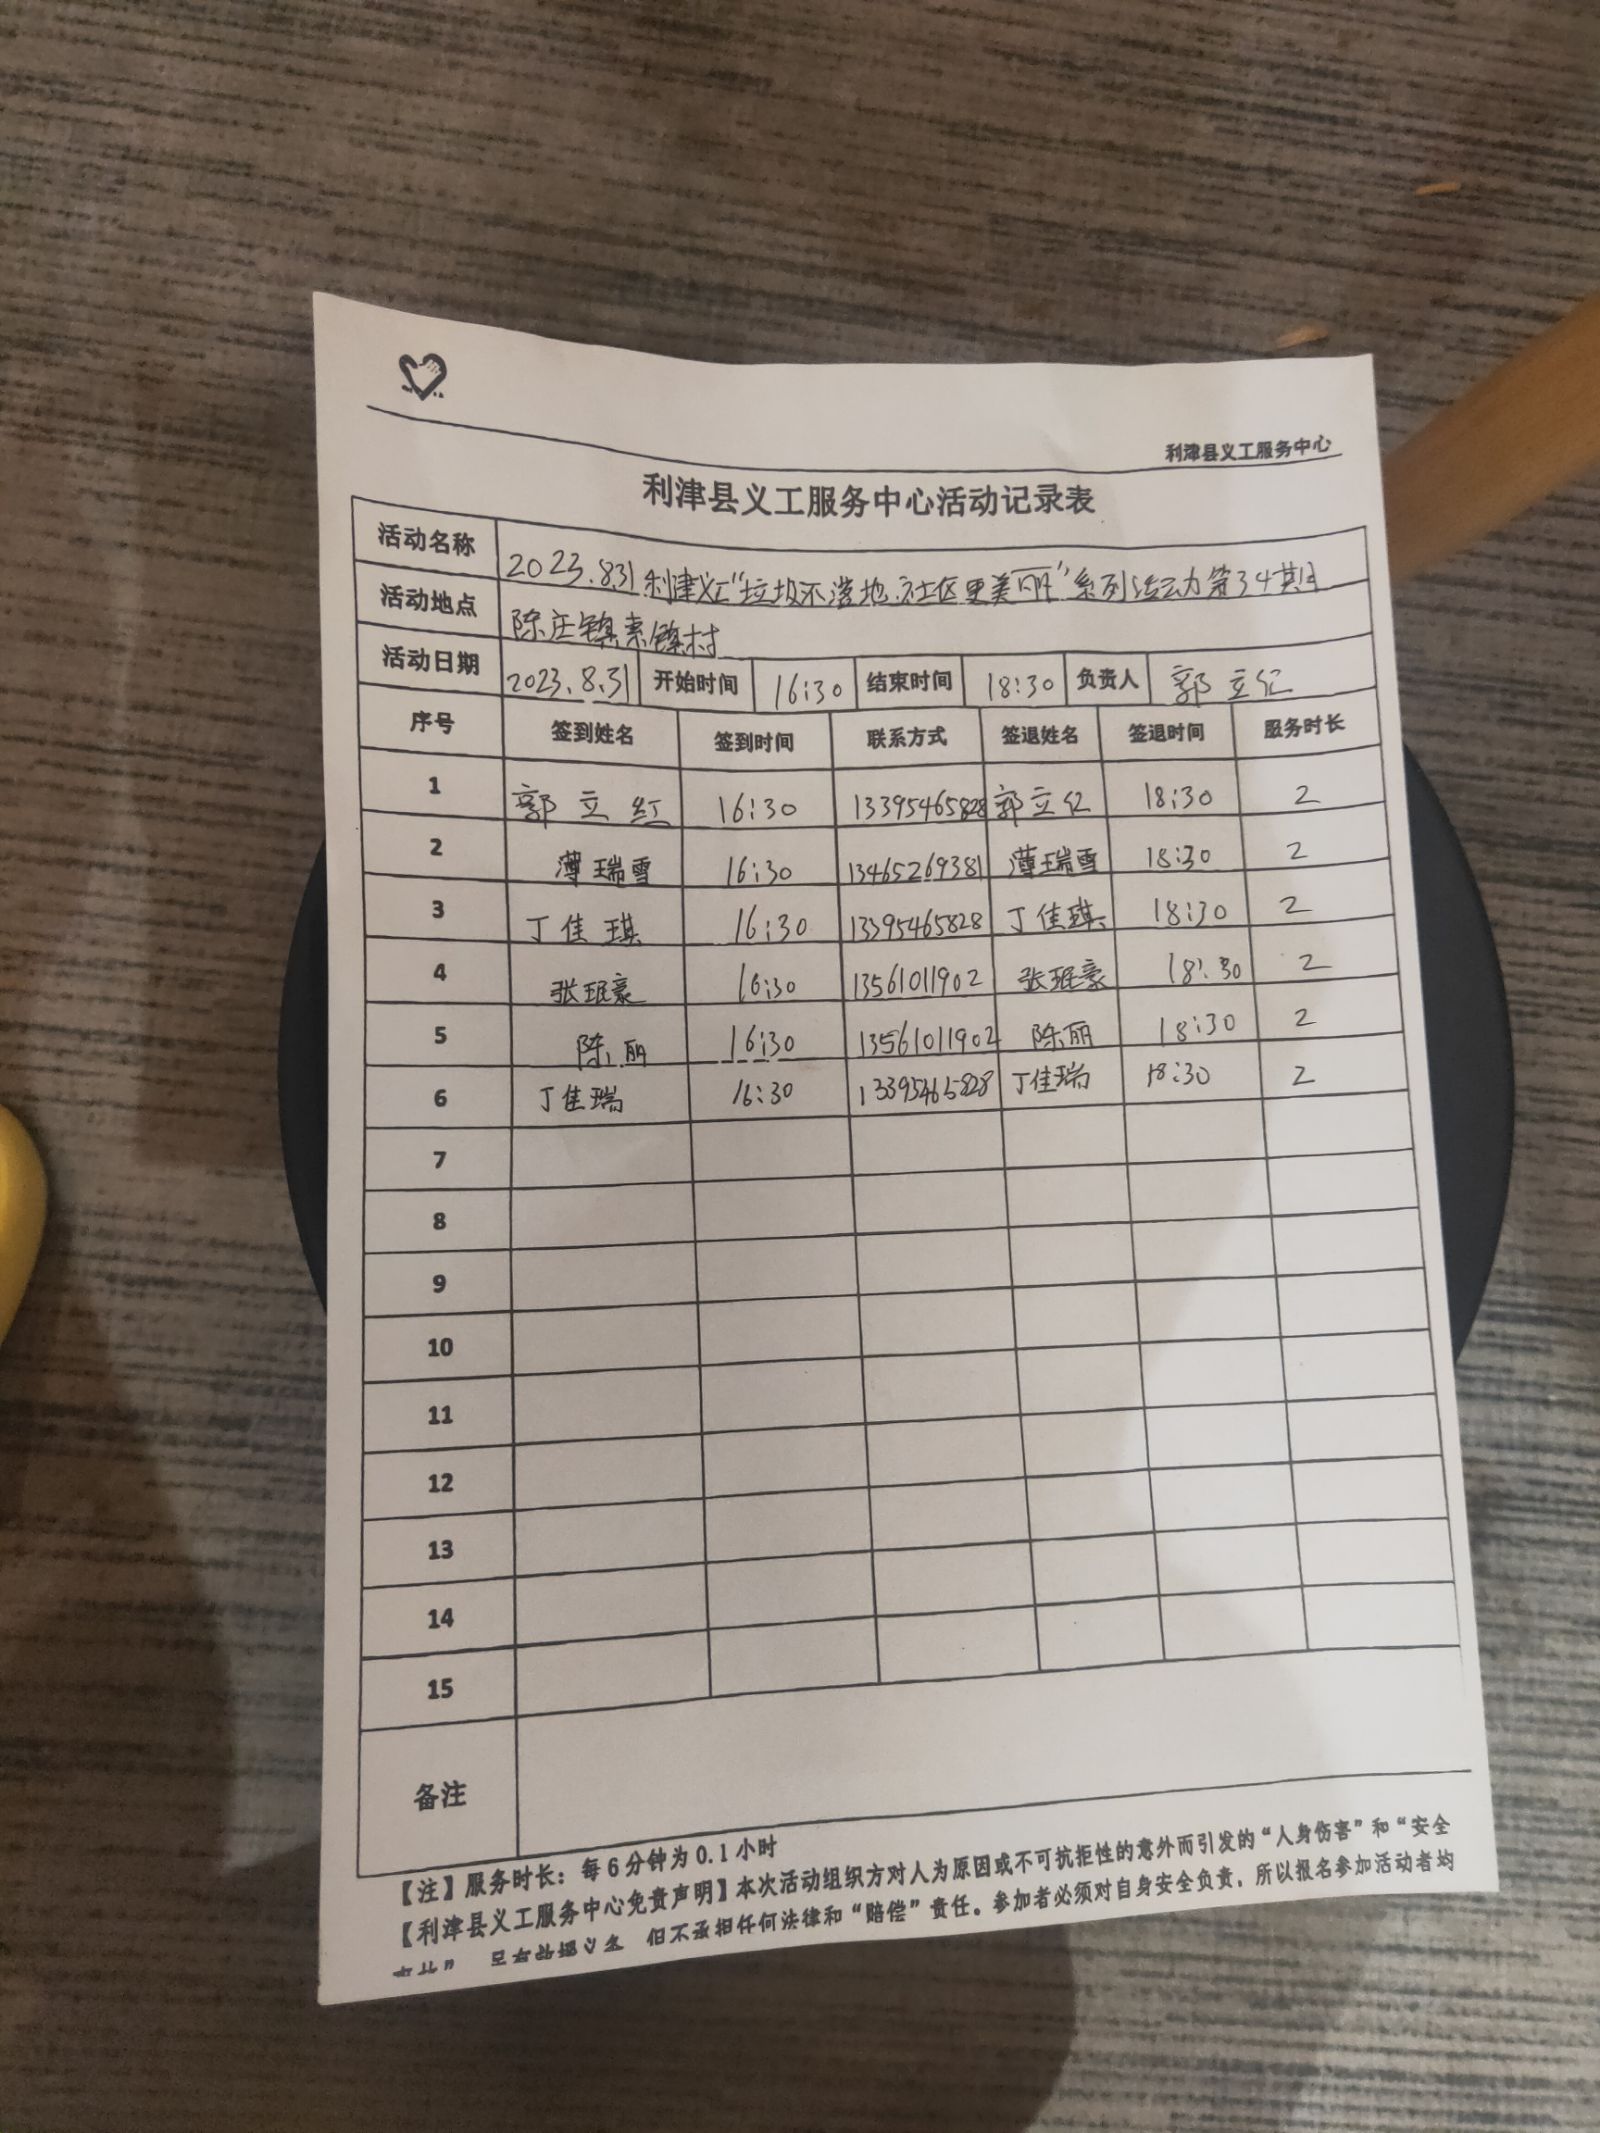 利津县义工服务中心
利津县义工服务中心活动记录表
活动名称 2023.8.31利津义工"垃圾不落地.社区更美丽"系列活动第34期
活动地点 陈庄镇 村
活动日期 2023.8.31 开始时间 16:30 结束时间 18:30 负责人 郭立红
序号 签到姓名 签到时间 联系方式 签退姓名 签退时间 服务时长
1 郭立红 16:30 13395465828 郭立红 18:30 2
2 薄瑞雪 16:30 13465269381 薄瑞雪 18:30 2
3 丁佳琪 16:30 13395465828 丁佳琪 18:30 2
4 张珉豪 16:30 13561011902 张珉豪 18:30 2
5 陈丽 16:30 13561011902 陈丽 18:30 2
6 丁佳瑞 16:30 13395465828 丁佳瑞 18:30 2
7
8
9
10
11
12
13
14
15
备注
【注】服务时长：每6分钟为0.1小时
【利津县义工服务中心免责声明】本次活动组织方对人为原因或不可抗拒性的意外而引发的“人身伤害”和“安全
但不承担任何法律和“赔偿”责任。参加者必须对自身安全负责，所以报名参加活动者均